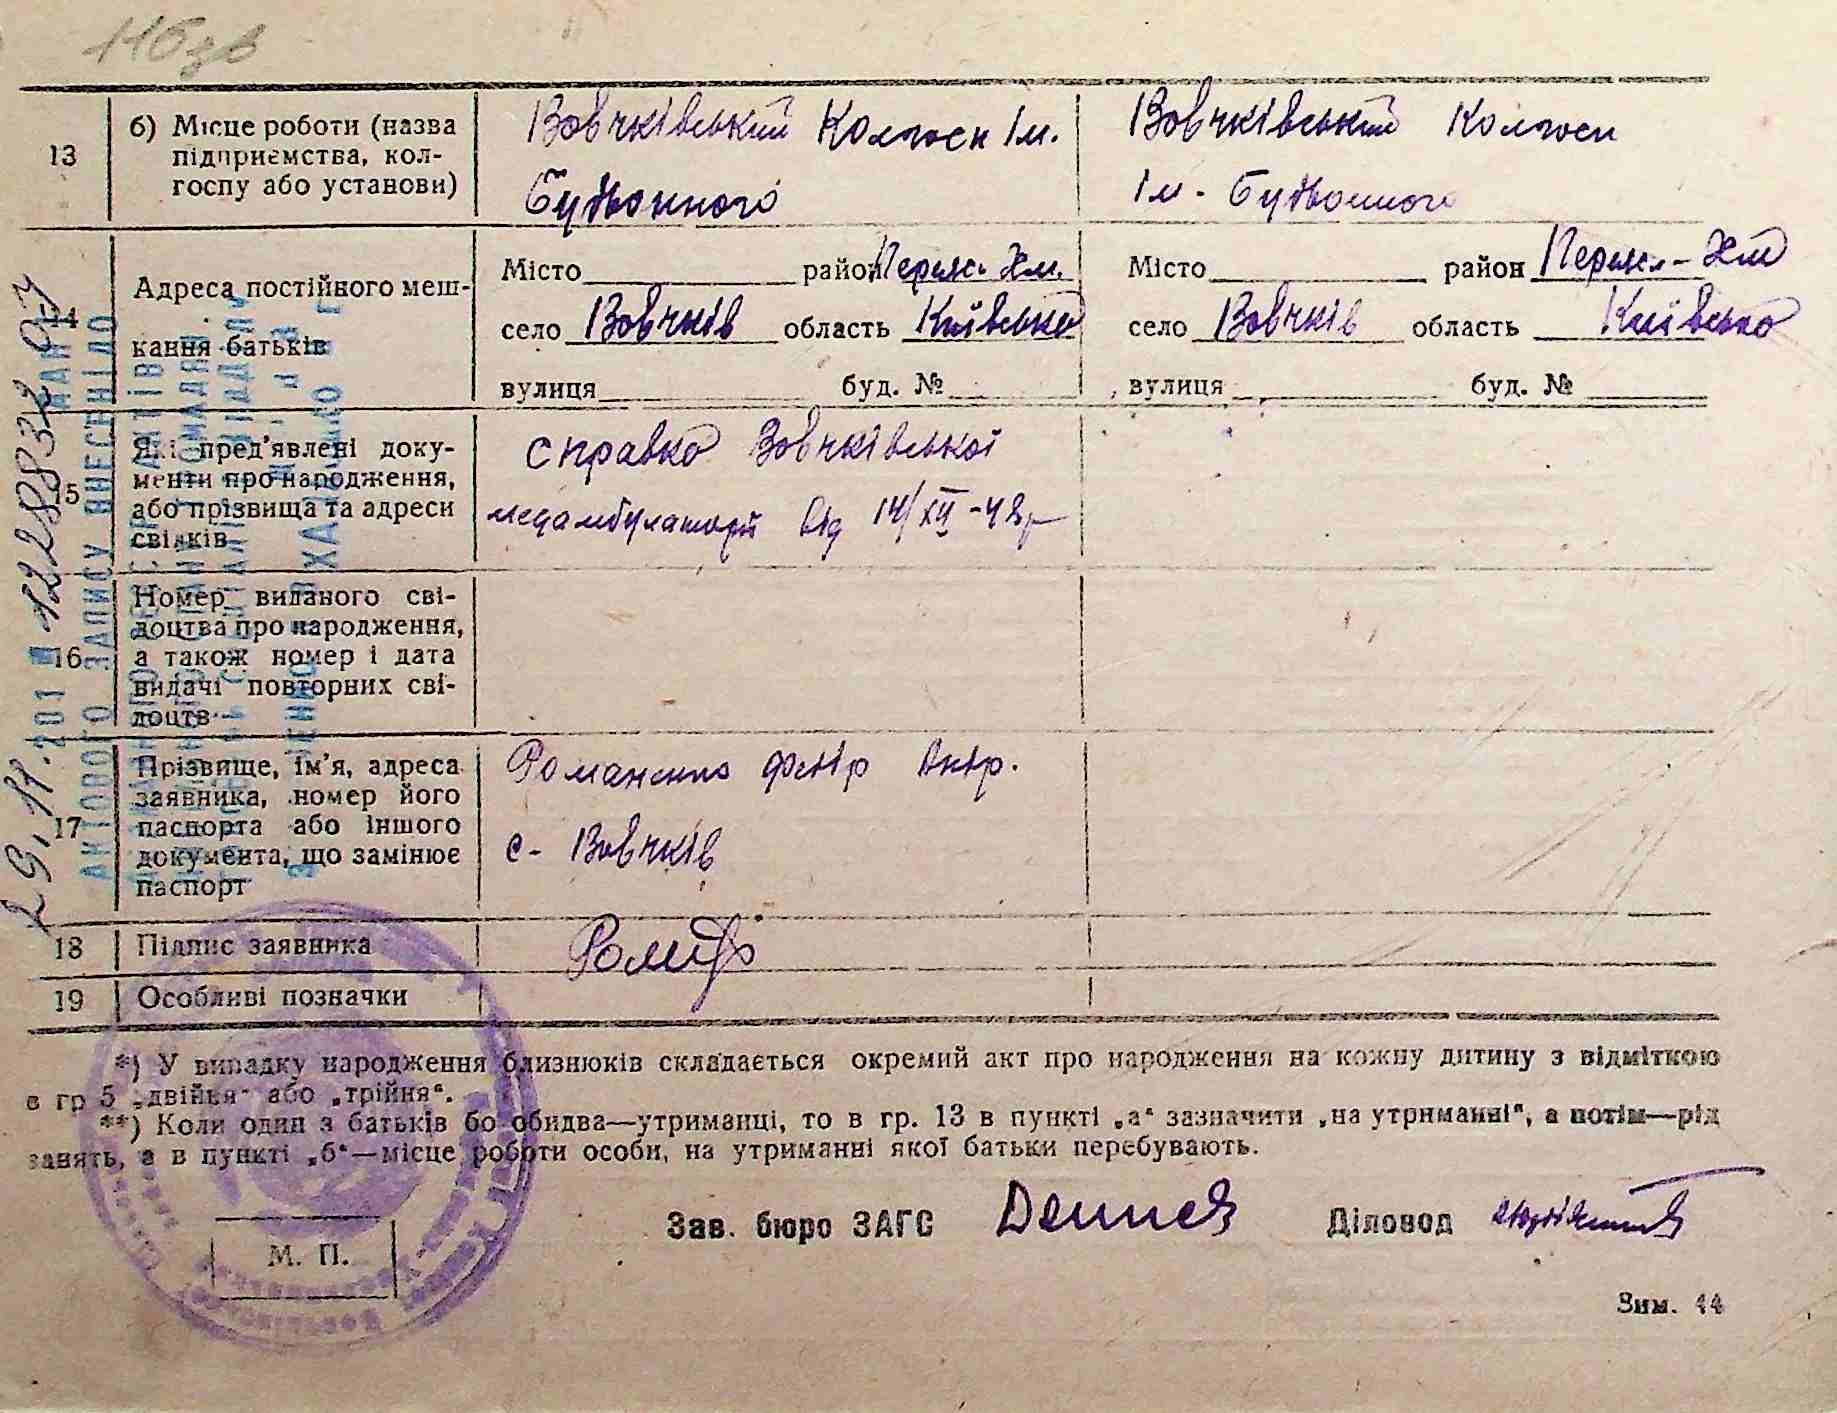 116зв
13
б) Місце роботи (назва
підприємства, кол-
госпу або установи)
Вовчківський Колгосп Ім.
Будьонного
Вовчківський Колгосп
Ім. Будьонного
14
Адреса постійного меш-
кання батьків
Місто район Переясл. Хм.
село Вовчків область Київська
вулиця буд. №
Місто район Переясл-Хм
село Вовчків область Київська
вулиця буд. №
15
Які пред'явлені доку-
менти про народження,
або прізвища та адреси
свідків
справка Вовчківської
медамбулаторії від 14/XII-48р
16
Номер виданого сві-
доцтва про народження,
а також номер і дата
видачі повторних сві-
доцтв
17
Прізвище, ім'я, адреса
заявника, номер його
паспорта або іншого
документа, що замінює
паспорт
Романенко Федір
с. Вовчків
18
Підпис заявника
19
Особливі позначки
АКТОВОГО ЗАПИСУ ВНЕСЕНІ ДО
*) У випадку народження близнюків складається окремий акт про народження на кожну дитину з відміткою
в гр 5 „двійня" або „трійня".
**) Коли один з батьків бо обидва—утриманці, то в гр. 13 в пункті „а" зазначити „на утриманні", а потім—рід
занять, а в пункті „б"—місце роботи особи, на утриманні якої батьки перебувають.
Зав. бюро ЗАГС
Діловод
М. П.
Зим. 44